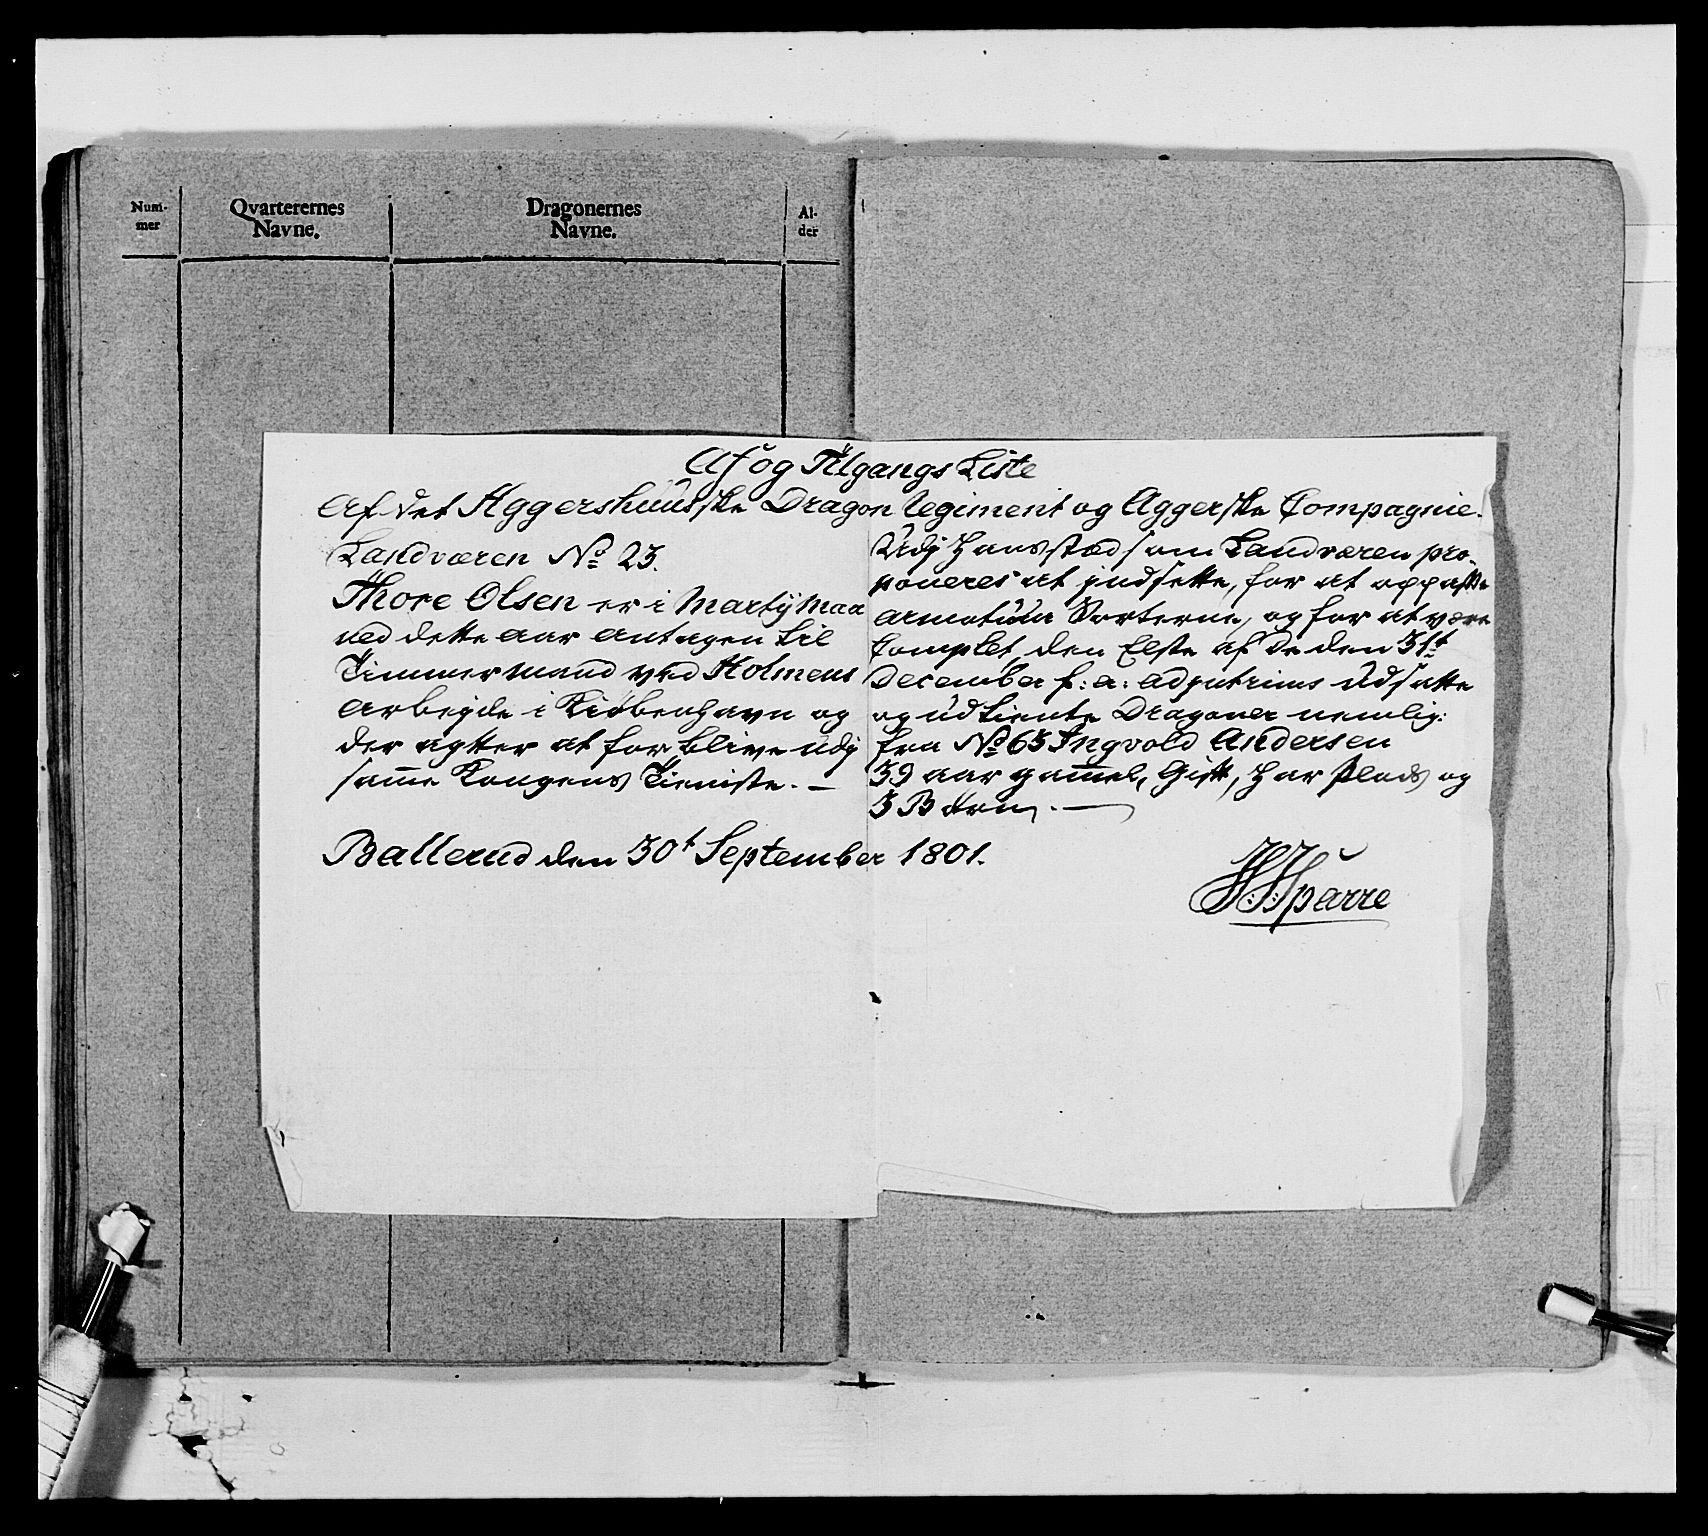 Num-
mer
Qvarterernes
Navne.
Dragonernes
Navne.
Al-
der
Af og Tilgangs Liste
Af det Aggershuusske Dragon Regiment og Aggerske Compagnie.
Landværen No 23.
Thore Olsen er i Martij Maa
ned dette aar antagen til
Timmermand ved Holmens
Arbeyde i Kiøbenhavn og
der agter at forblive udj
samme Kongens Tieniste. —
Udj Hans stæd som Landværen pro-
poneres at indsette, for at oppasse
Armatuur Sorterne, og for at være
Complet, den Elste af de den 31t
December f: a: udsatte
og udtiente Dragoner nemlig:
fra No 63 Ingvold Andersen
39 aar gammel, Gift, har Plads og
3 Børn. —
Ballerud den 30t September 1801.
H: H: Sparre